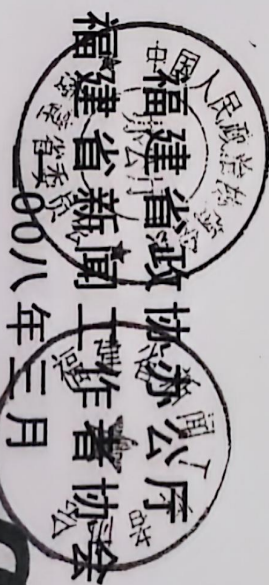 福建省政协办公厅
福建省新闻工作者协会
二00八年三月